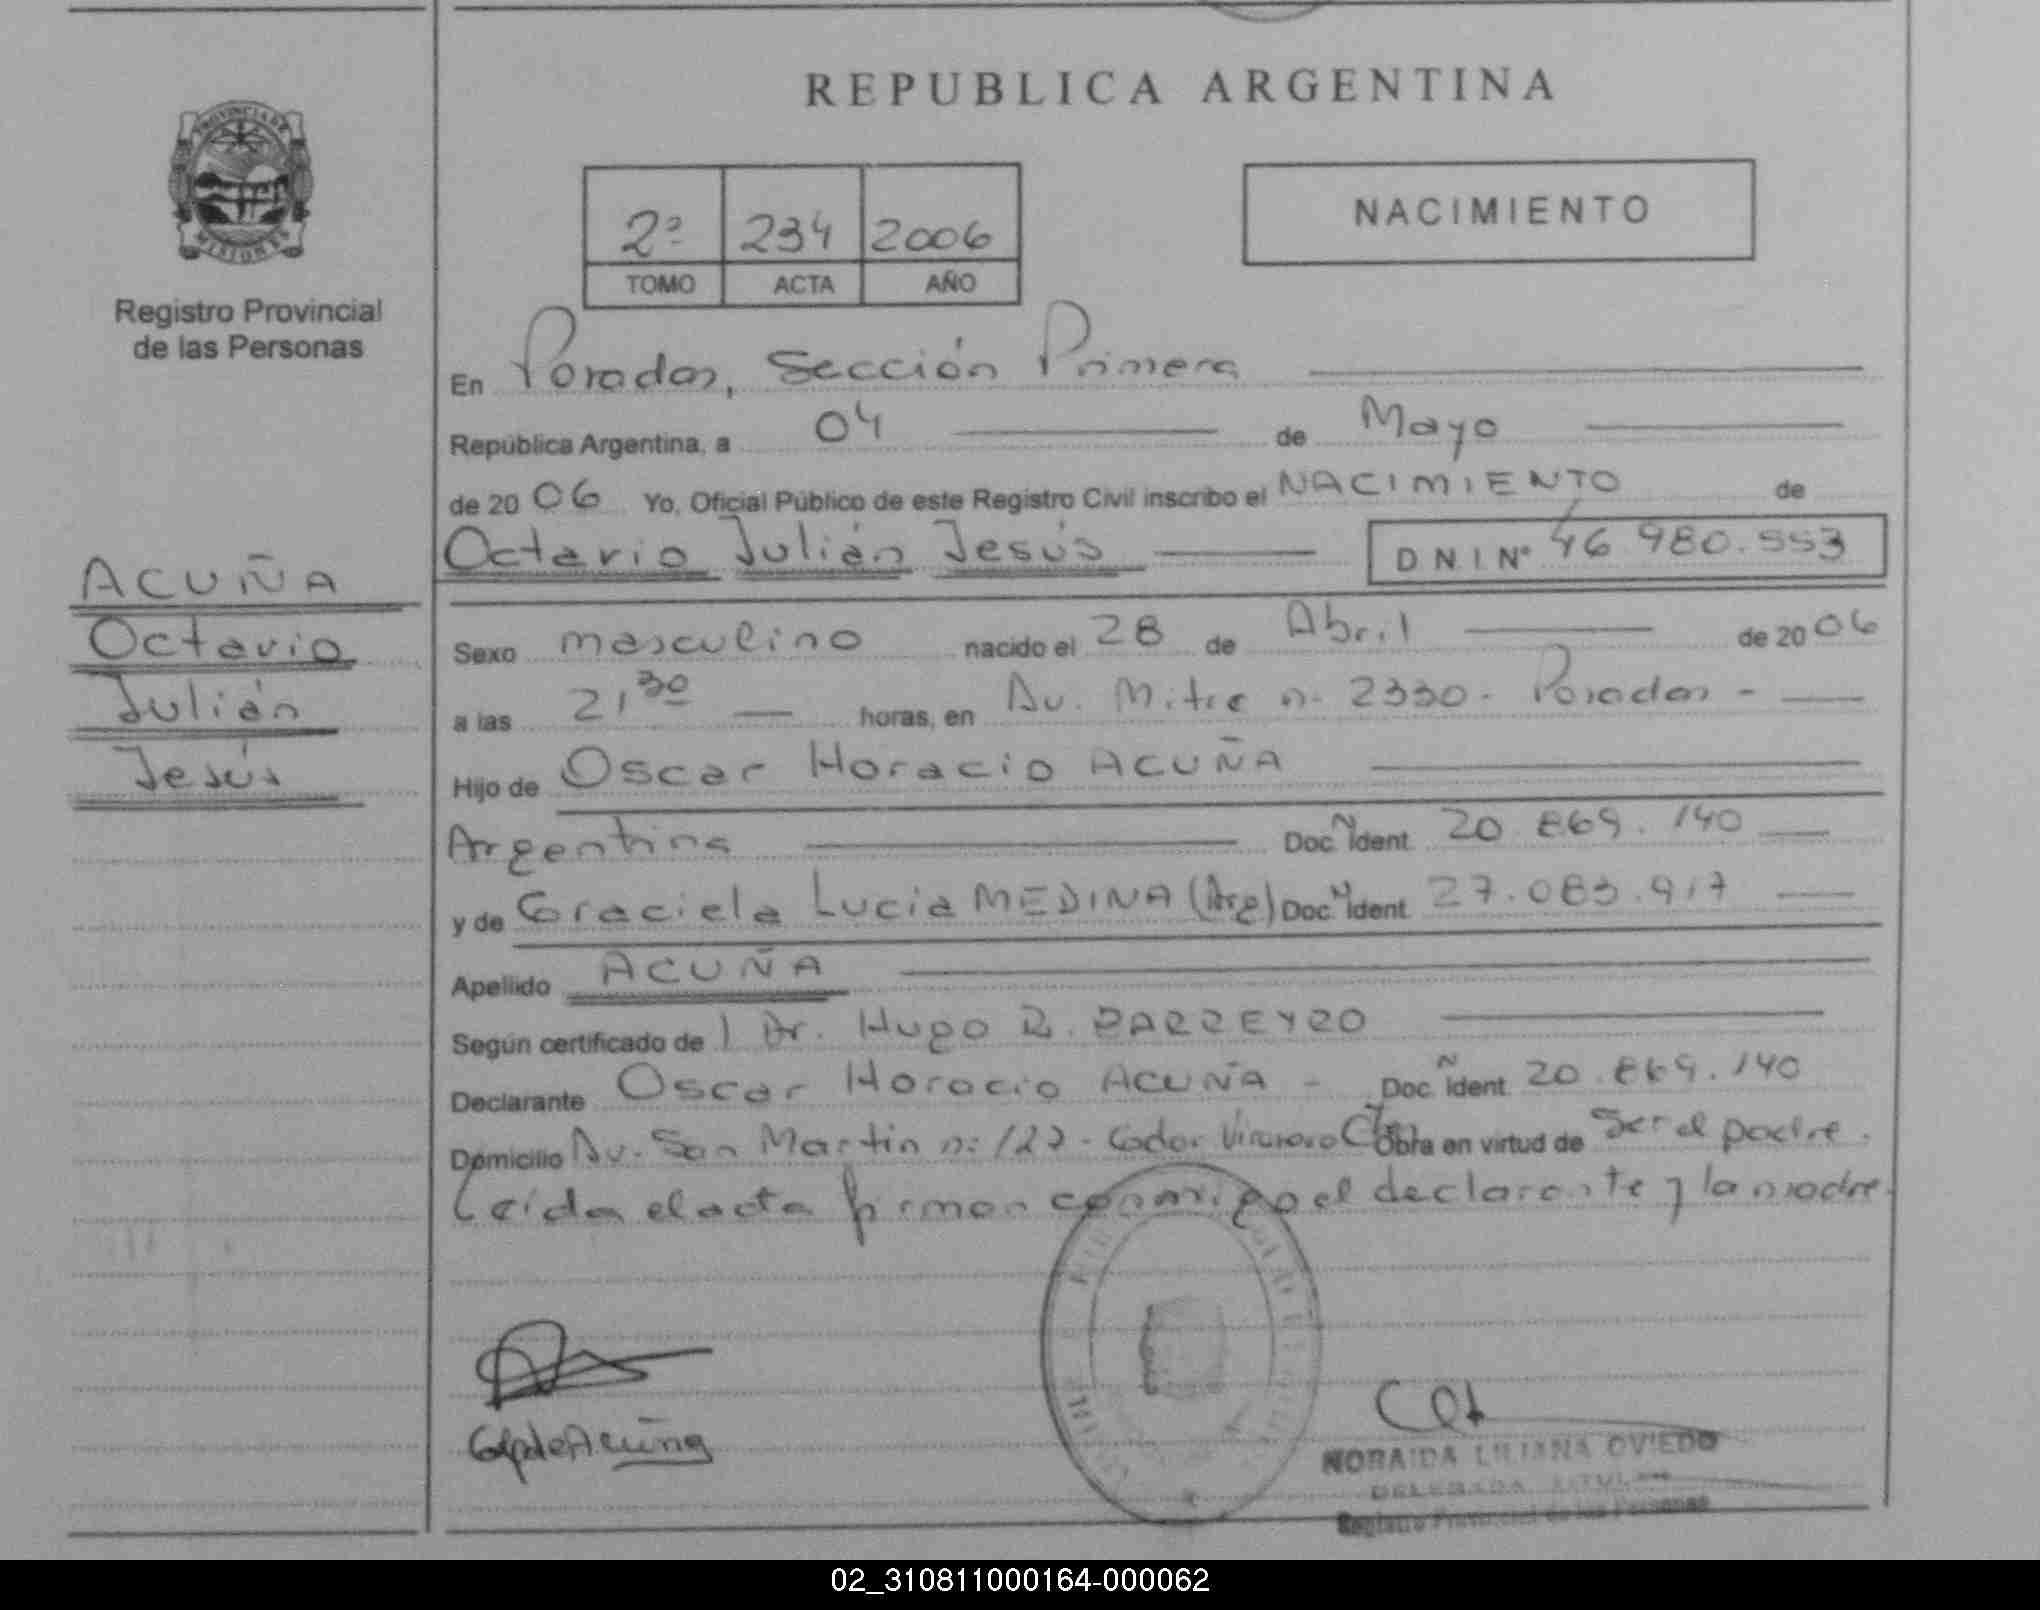 REPUBLICA ARGENTINA
PROVINCIA DE
MISIONES
Registro Provincial
de las Personas
2º 234 2006
TOMO ACTA AÑO
NACIMIENTO
En Posadas, Sección Primera
República Argentina, a 04 de Mayo
de 20 06 Yo, Oficial Público de este Registro Civil inscribo el NACIMIENTO de
Octavio Julián Jesús D N I Nº 46 980.553
ACUÑA
Octavio
Julián
Jesús
Sexo masculino nacido el 28 de Abril de 20 06
a las 21 30 horas, en Av. Mitre n- 2330- Posadas -
Hijo de Oscar Horacio ACUÑA
Argentina Doc. N Ident 20 869. 140
y de Graciela Lucia MEDINA (Arg) Doc. N Ident 27.083.917
Apellido ACUÑA
Según certificado de Dr. Hugo R. BARREYRO
Declarante Oscar Horacio ACUÑA - Doc. N Ident 20.869.140
Domicilio Av. San Martin n: 122 - Gdor Virasoro Obra en virtud de ser el padre.
Leída el acta firman conmigo el declarante y la madre.
de Acuña
NORAIDA LILIANA OVIEDO
DELEGADA TITULAR
Registro Provincial de las Personas
02_310811000164-000062